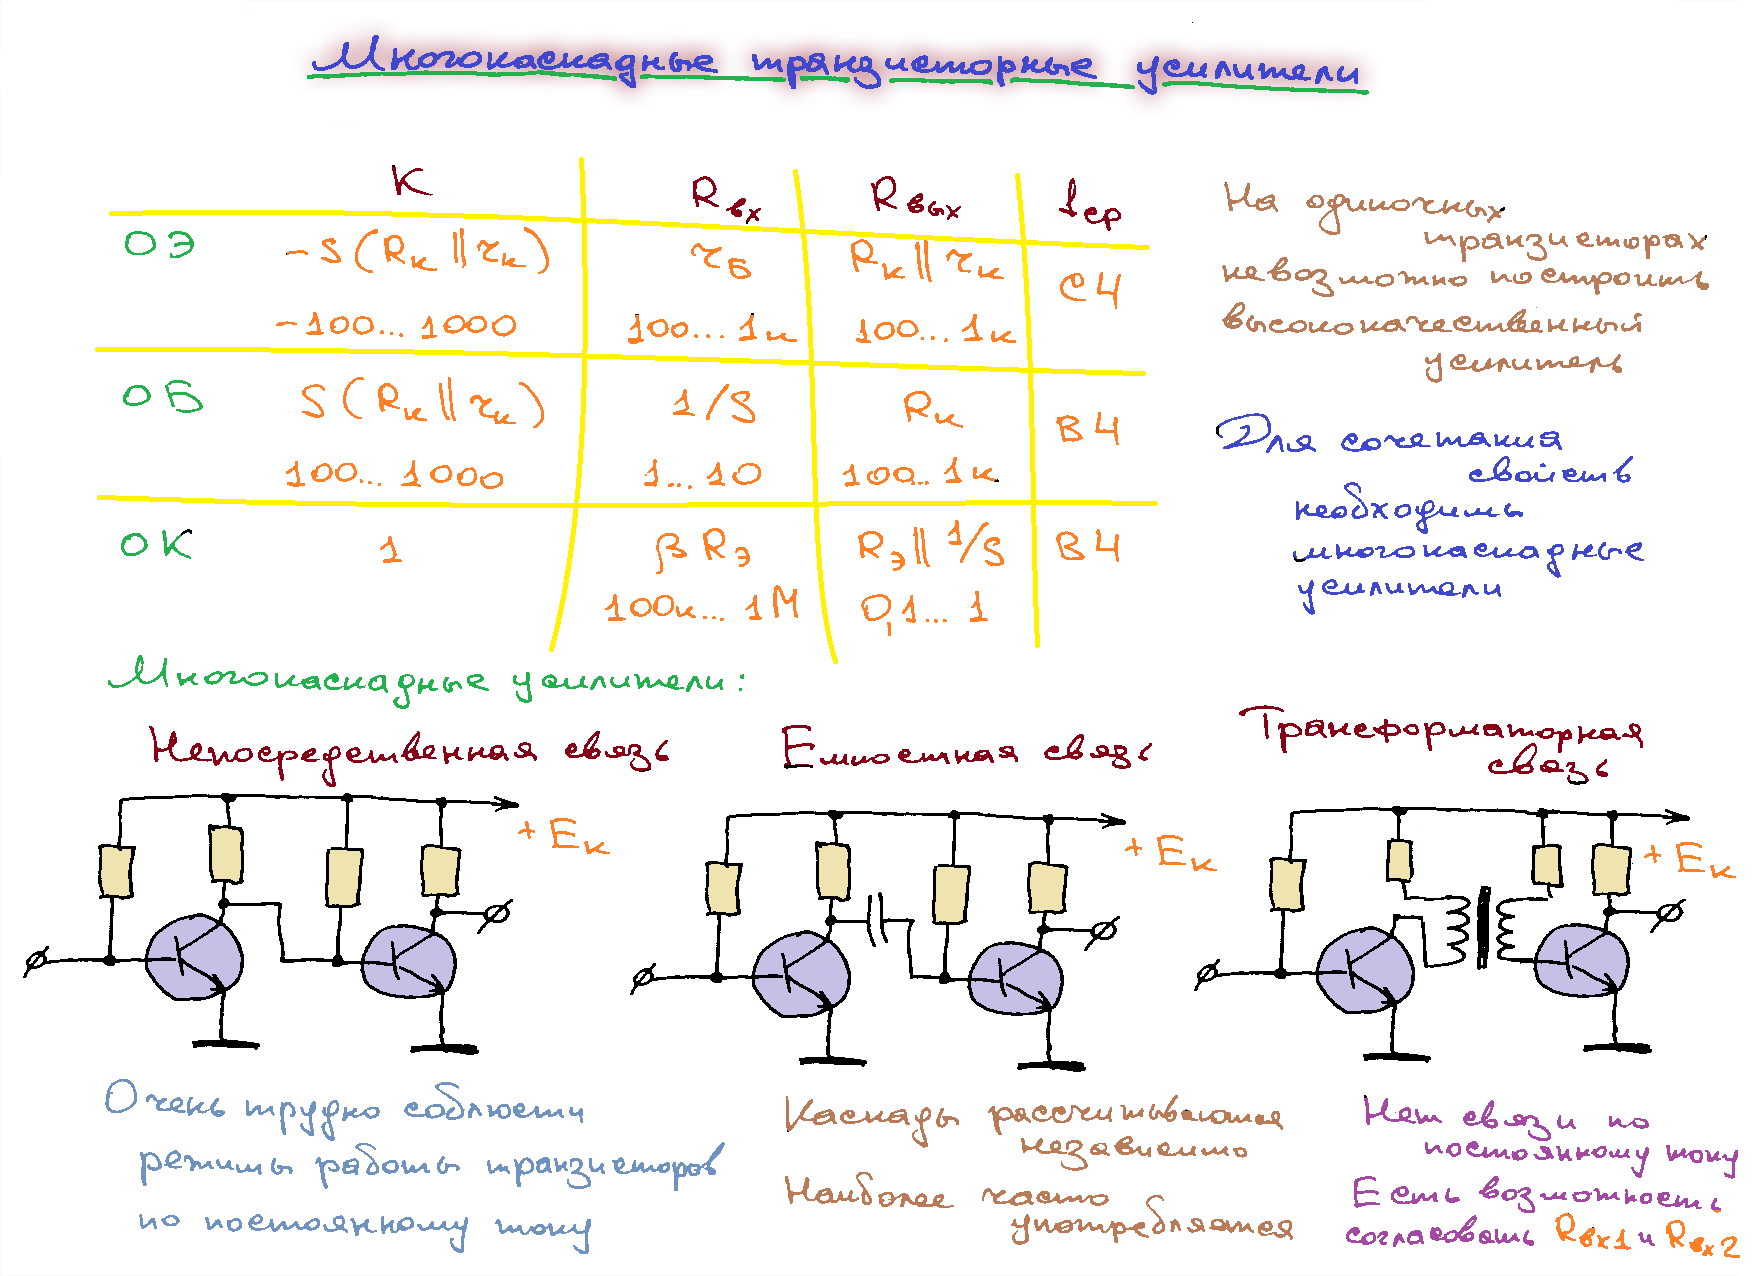 Многокаскадные транзисторные усилители
К Rвх Rвых fср
ОЭ -S(Rк || rк) rБ Rк || rк СЧ
-100... 1000 100... 1к 100... 1к
ОБ S(Rк || rк) 1/S Rк ВЧ
100... 1000 1... 10 100.. 1к
ОК 1 β Rэ Rэ || 1/S ВЧ
100к... 1М 0,1... 1
На одиночных
транзисторах
невозможно построить
высококачественный
усилитель
Для сочетания
свойств
необходимы
многокаскадные
усилители
Многокаскадные усилители:
Непосредственная связь
+ Eк
Очень трудно соблюсти
режимы работы транзисторов
по постоянному току
Емкостная связь
+ Eк
Каскады рассчитываются
независимо
Наиболее часто
употребляется
Трансформаторная
связь
+ Eк
Нет связи по
постоянному току
Есть возможность
согласовать Rвх1 и Rвх2